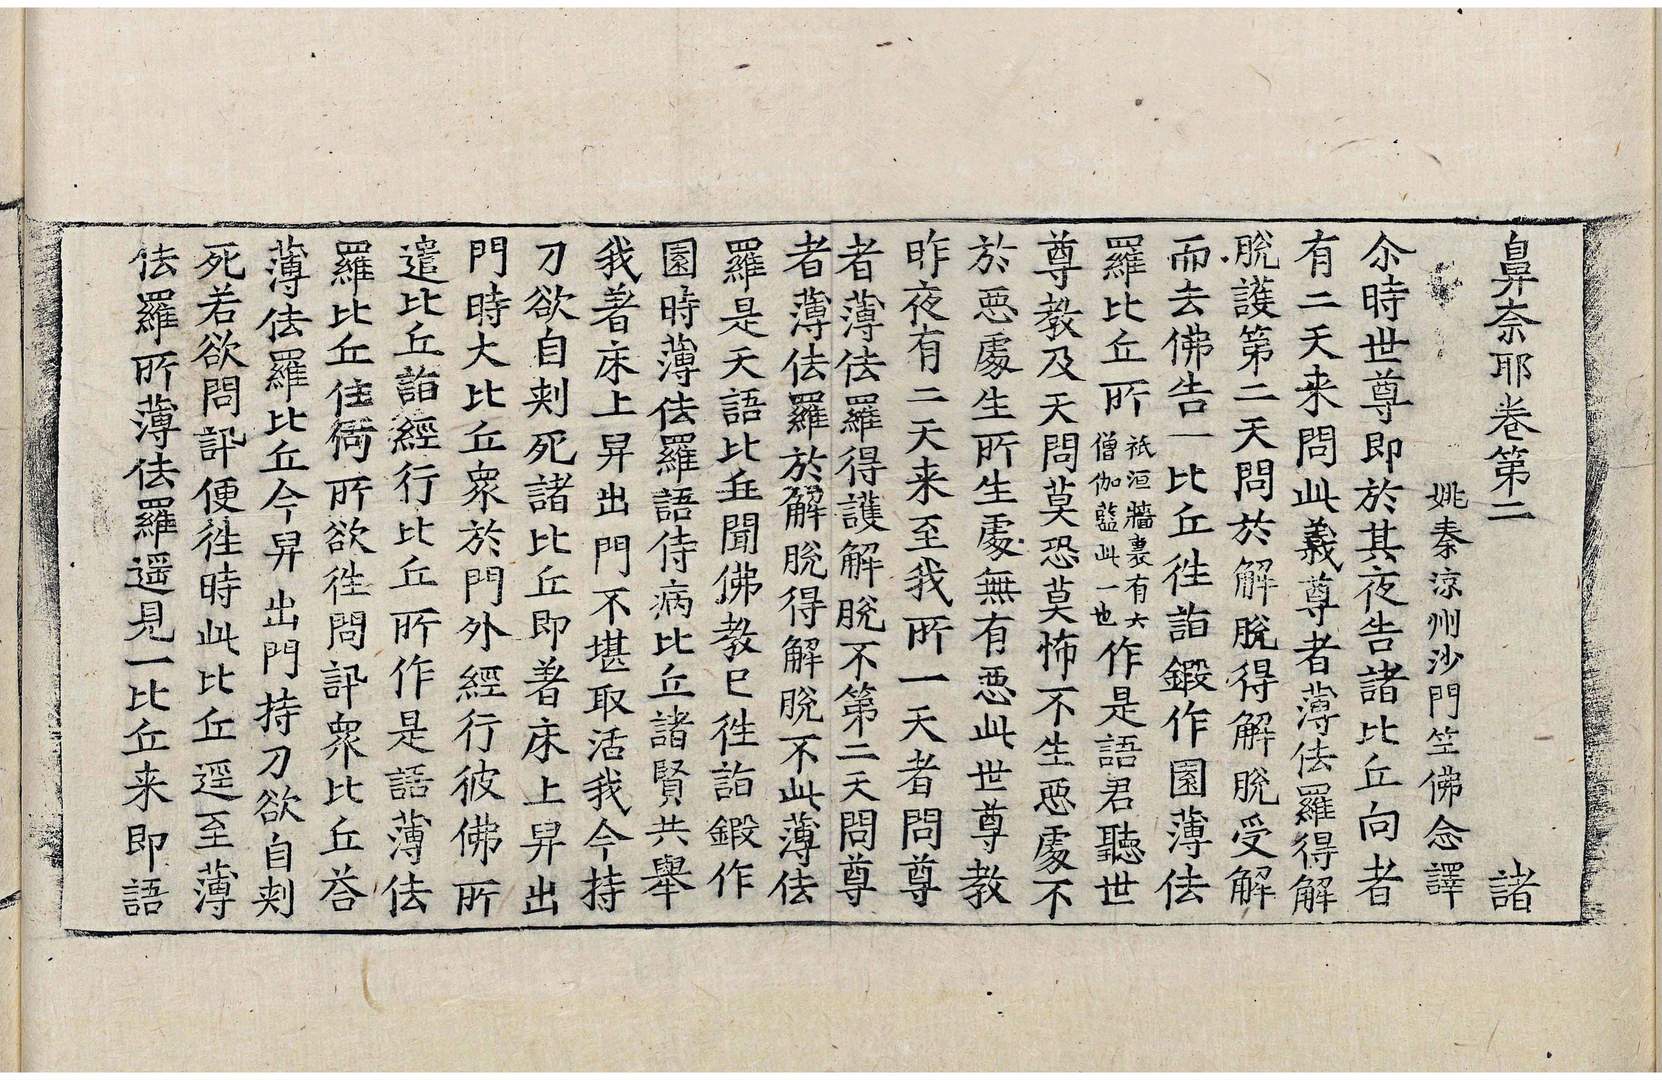 鼻奈耶卷第二 諸
姚秦涼州沙門竺佛念譯
尒時世尊即於其夜告諸比丘向者
有二天来問此義尊者薄佉羅得解
脫護第二天問於解脫得解脫受解
而去佛告一比丘徃詣鍛作園薄佉
羅比丘所祇洹牆裏有六僧伽藍此一也作是語君聽世
尊教及天問莫恐莫怖不生惡處不
於惡處生所生處無有惡此世尊教
昨夜有二天来至我所一天者問尊
者薄佉羅得護解脫不第二天問尊
者薄佉羅於解脫得解脫不此薄佉
羅是天語比丘聞佛教已徃詣鍛作
園時薄佉羅語侍病比丘諸賢共舉
我著床上昇出門不堪取活我今持
刀欲自刾死諸比丘即著床上昇出
門時大比丘衆於門外經行彼佛所
遣比丘詣經行比丘所作是語薄佉
羅比丘住何所欲徃問訊衆比丘荅
薄佉羅比丘今昇出門持刀欲自刾
死若欲問訊便徃時此比丘逕至薄
佉羅所薄佉羅遥見一比丘来即語